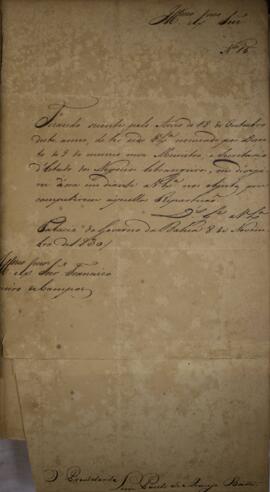 Illmo Exmo Snr
Nº 16
Ficando sciente pelo Aviso de 18 de Outubro
deste anno, de ter sido V Exa nomeado por Decre-
to de 9 do mesmo mez Ministro e Secretario
d'Estado dos Negocios Estrangeiros, me dirigi-
rei d'ora em diante a V Exa nos objectos que
competirem áquella Repartição.
Ds Ge a V Exa
Palacio do Governo da Bahia 8 de Novem-
bro de 1830
Illmo Exmo Snr Francisco
Carneiro de Campos
O Presidente
Luis Paulo de Araujo Bastos